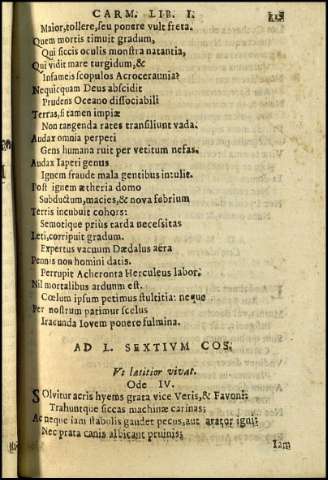 CARM. LIB. I.
Maior, tollere, seu ponere vult freta.
Quem mortis timuit gradum,
Qui siccis oculis monstra natantia,
Qui vidit mare turgidum, &
Infameis scopulos Acroceraunia?
Nequicquam Deus abscidit
Prudens Oceano dissociabili
Terras, si tamen impiæ
Non tangenda rates transiliunt vada.
Audax omnia perpeti
Gens humana ruit per vetitum nefas.
Audax Iapeti genus
Ignem fraude mala gentibus intulit.
Post ignem ætheria domo
Subductum, macies, & nova febrium
Terris incubuit cohors:
Semotique priùs tarda necessitas
Leti, corripuit gradum.
Expertus vacuum Dædalus aera
Pennis non homini datis.
Perrupit Acheronta Herculeus labor.
Nil mortalibus arduum est.
Cœlum ipsum petimus stultitia: neque
Per nostrum patimur scelus
Iracunda Iovem ponere fulmina.
AD L. SEXTIVM COS.
Vt lætitior vivat.
Ode IV.
SOlvitur acris hyems grata vice Veris, & Favoni:
Trahuntque siccas machinæ carinas;
Ac neque iam stabulis gaudet pecus, aut arator igni:
Nec prata canis albicant pruinis;
Iam